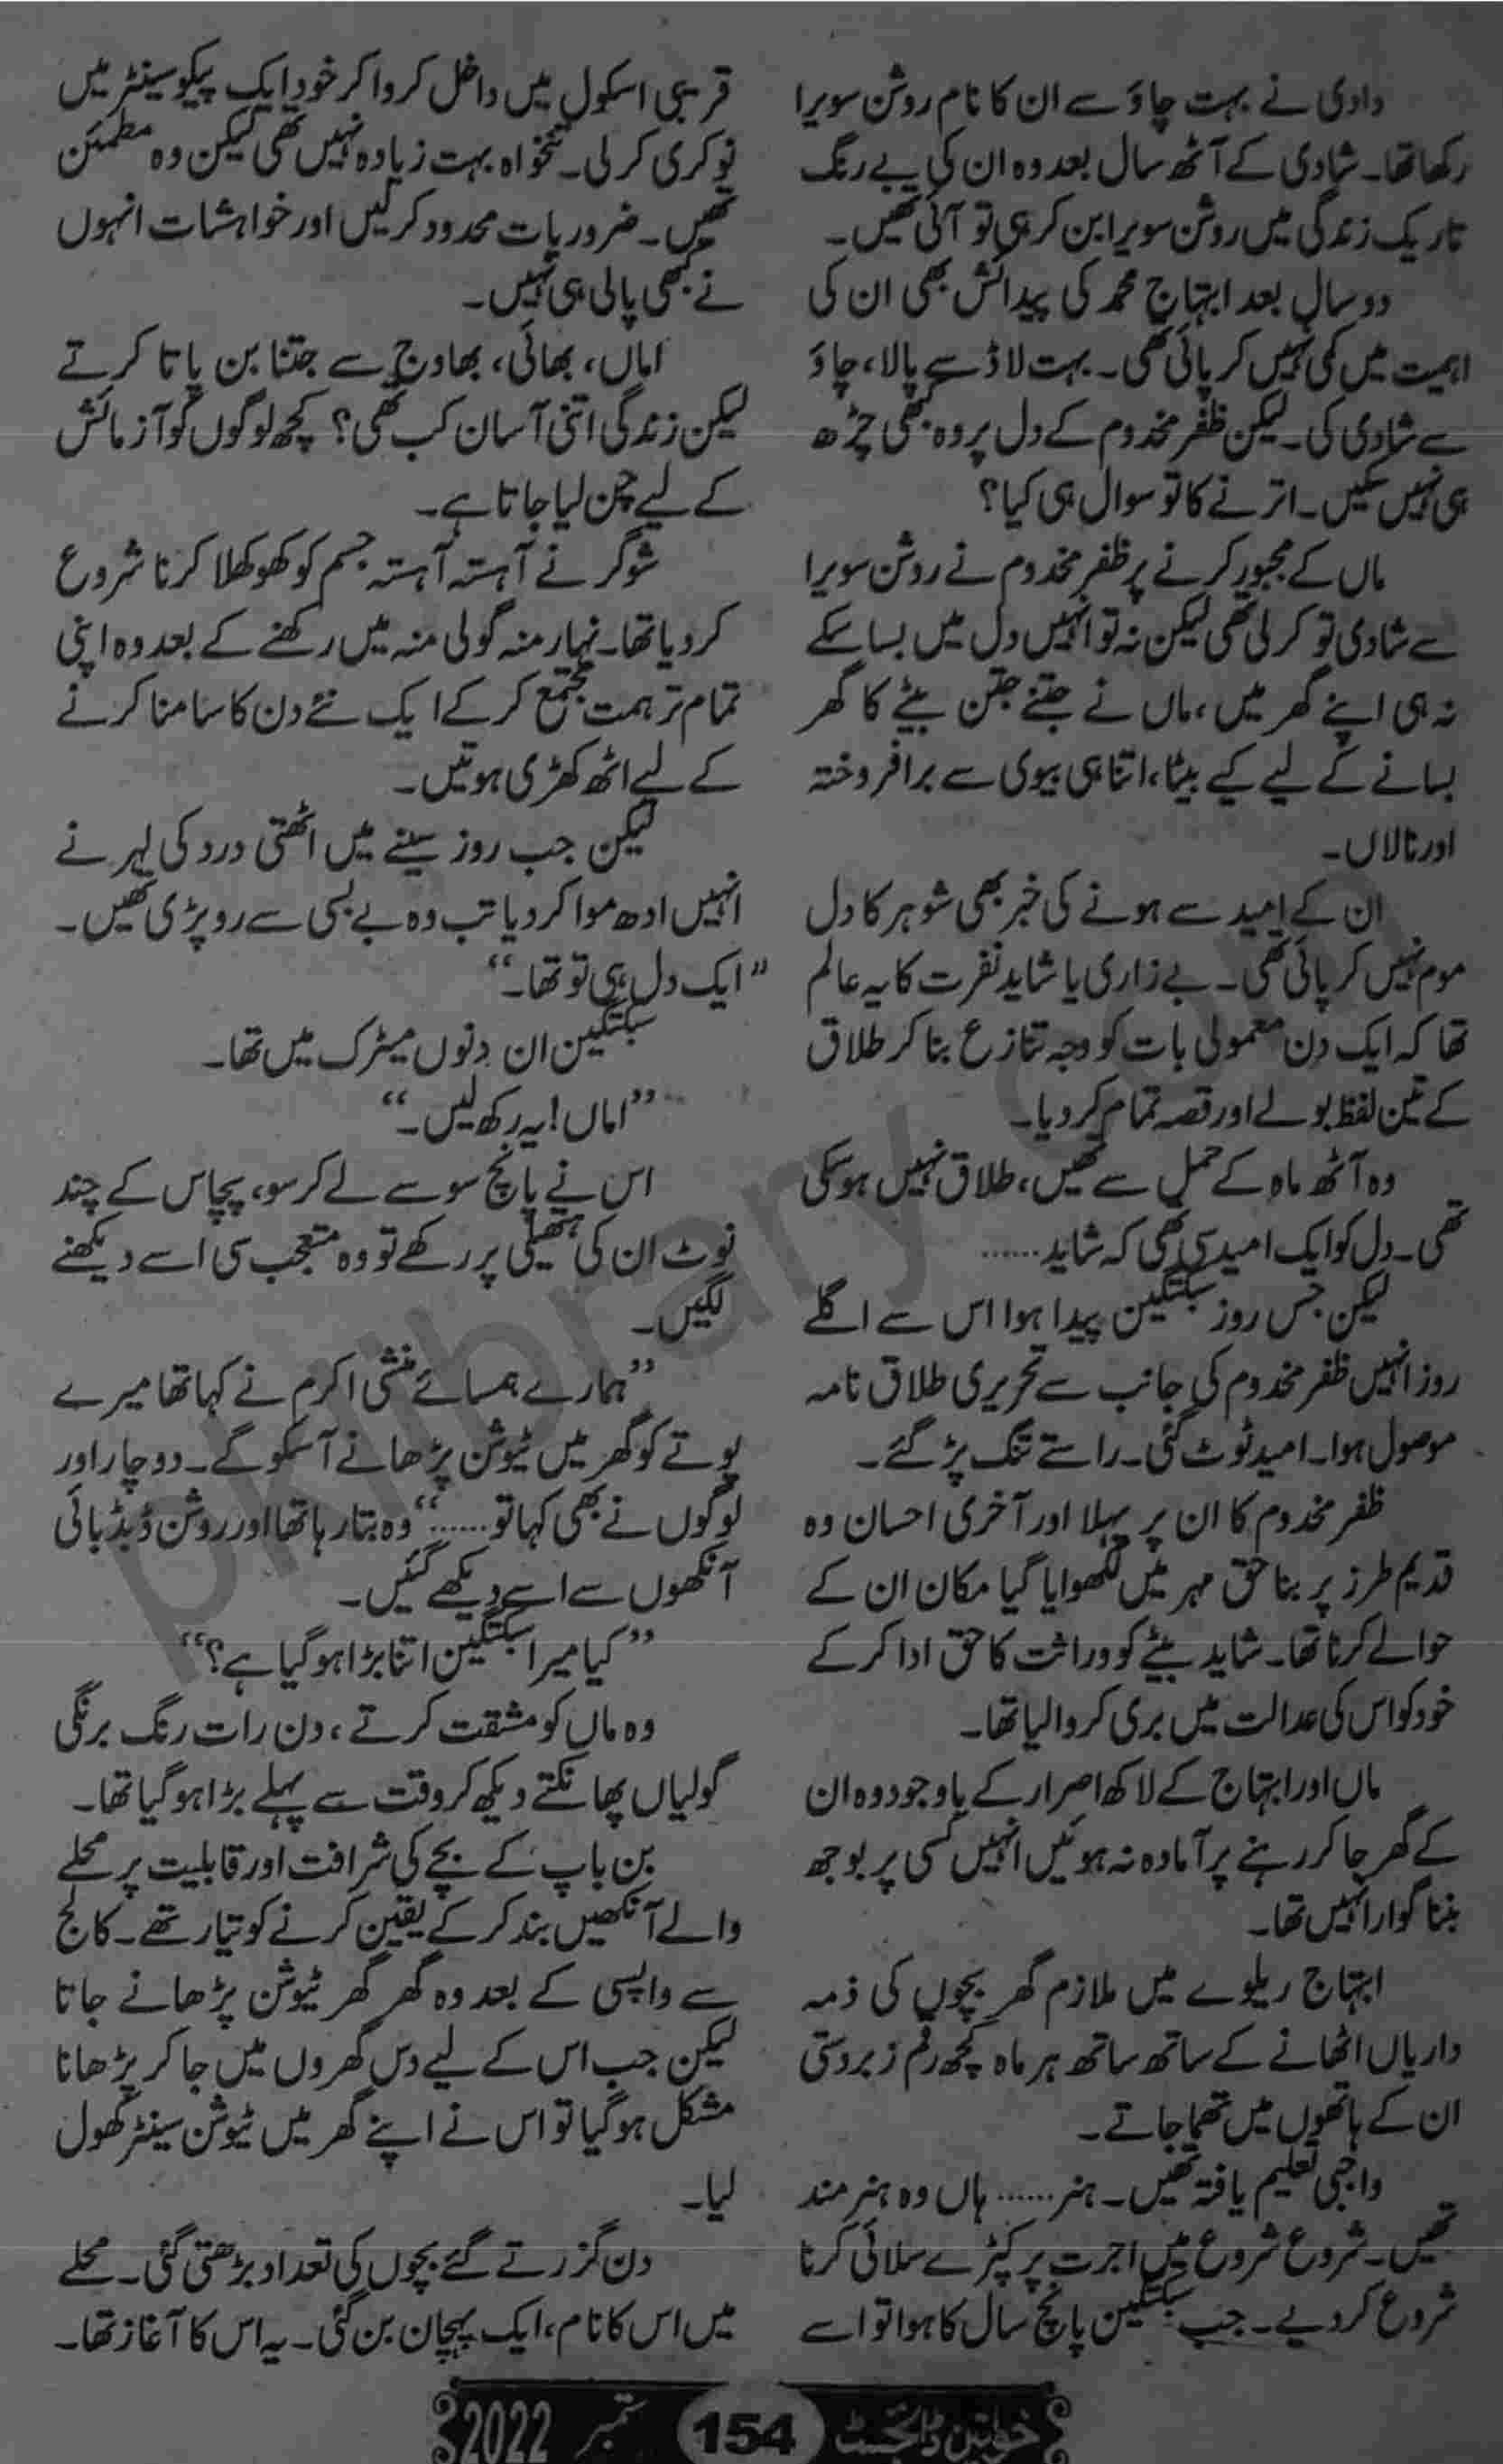 دادی نے بہت چاؤ سے ان کا نام روشن سویرا
رکھا تھا۔ شادی کے آٹھ سال بعد وہ ان کی بے رنگ
تاریک زندگی میں روشن سویرا بن کر ہی تو آئی تھیں۔
دو سال بعد ابتہاج محمد کی پیدائش بھی ان کی
اہمیت میں کمی نہیں کر پائی تھی۔ بہت لاڈ سے پالا، چاؤ
سے شادی کی۔ لیکن ظفر مخدوم کے دل پر وہ کبھی چڑھ
ہی نہیں سکیں۔ اترنے کا تو سوال ہی کیا؟
ماں کے مجبور کرنے پر ظفر مخدوم نے روشن سویرا
سے شادی تو کر لی تھی لیکن نہ تو انہیں دل میں بسا سکے
نہ ہی اپنے گھر میں، ماں نے جتنے جتن بیٹے کا گھر
بسانے کے لیے کیے بیٹا، اتنا ہی بیوی سے برافروختہ
اور نالاں۔
ان کے امید سے ہونے کی خبر بھی شوہر کا دل
موم نہیں کر پائی تھی۔ بے زاری یا شاید نفرت کا یہ عالم
تھا کہ ایک دن معمولی بات کو وجہ تنازع بنا کر طلاق
کے تین لفظ بولے اور قصہ تمام کر دیا۔
وہ آٹھ ماہ کے حمل سے تھیں، طلاق نہیں ہو سکی
تھی۔ دل کو ایک امید سی تھی کہ شاید......
لیکن جس روز سبکتگین پیدا ہوا اس سے اگلے
روز انہیں ظفر مخدوم کی جانب سے تحریری طلاق نامہ
موصول ہوا۔ امید ٹوٹ گئی۔ راستے تنگ پڑ گئے۔
ظفر مخدوم کا ان پر پہلا اور آخری احسان وہ
قدیم طرز پر بنا حق مہر میں لکھوایا گیا مکان ان کے
حوالے کرنا تھا۔ شاید بیٹے کو وراثت کا حق ادا کر کے
خود کو اس کی عدالت میں بری کروا لیا تھا۔
ماں اور ابتہاج کے لاکھ اصرار کے باوجود وہ ان
کے گھر جا کر رہنے پر آمادہ نہ ہوئیں انہیں کسی پر بوجھ
بننا گوارا نہیں تھا۔
ابتہاج ریلوے میں ملازم گھر بچوں کی ذمہ
داریاں اٹھانے کے ساتھ ساتھ ہر ماہ کچھ رقم زبردستی
ان کے ہاتھوں میں تھما جاتے۔
واجبی تعلیم یافتہ تھیں۔ ہنر...... ہاں وہ ہنر مند
تھیں۔ شروع شروع میں اجرت پر کپڑے سلائی کرنا
شروع کر دیے۔ جب سبکتگین پانچ سال کا ہوا تو اسے
قریبی اسکول میں داخل کروا کر خود ایک پیکو سینٹر میں
نوکری کر لی۔ تنخواہ بہت زیادہ نہیں تھی لیکن وہ مطمئن
تھیں۔ ضروریات محدود کر لیں اور خواہشات انہوں
نے کبھی پالی ہی نہیں۔
اماں، بھائی، بھاوج سے جتنا بن پاتا کرتے
لیکن زندگی اتنی آسان کب تھی؟ کچھ لوگوں کو آزمائش
کے لیے چن لیا جاتا ہے۔
شوگر نے آہستہ آہستہ جسم کو کھوکھلا کرنا شروع
کر دیا تھا۔ نہار منہ گولی منہ میں رکھنے کے بعد وہ اپنی
تمام تر ہمت مجتمع کر کے ایک نئے دن کا سامنا کرنے
کے لیے اٹھ کھڑی ہوتیں۔
لیکن جب روز سینے میں اٹھتی درد کی لہر نے
انہیں ادھ موا کر دیا تب وہ بے بسی سے رو پڑی تھیں۔
”ایک دل ہی تو تھا۔“
سبکتگین ان دنوں میٹرک میں تھا۔
”اماں! یہ رکھ لیں۔“
اس نے پانچ سو سے لے کر سو، پچاس کے چند
نوٹ ان کی ہتھیلی پر رکھے تو وہ متعجب سی اسے دیکھنے
لگیں۔
”ہمارے ہمسائے منشی اکرم نے کہا تھا میرے
پوتے کو گھر میں ٹیوشن پڑھانے آ سکو گے۔ دو چار اور
لوگوں نے بھی کہا تو......“ وہ بتا رہا تھا اور روشن ڈبڈبائی
آنکھوں سے اسے دیکھے گئیں۔
”کیا میرا سبکتگین اتنا بڑا ہو گیا ہے؟“
وہ ماں کو مشقت کرتے، دن رات رنگ برنگی
گولیاں پھانکتے دیکھ کر وقت سے پہلے بڑا ہو گیا تھا۔
بن باپ کے بچے کی شرافت اور قابلیت پر محلے
والے آنکھیں بند کر کے یقین کرنے کو تیار تھے۔ کالج
سے واپسی کے بعد وہ گھر گھر ٹیوشن پڑھانے جاتا
لیکن جب اس کے لیے دس گھروں میں جا کر پڑھانا
مشکل ہو گیا تو اس نے اپنے گھر میں ٹیوشن سینٹر کھول
لیا۔
دن گزرتے گئے بچوں کی تعداد بڑھتی گئی۔ محلے
میں اس کا نام، ایک پہچان بن گئی۔ یہ اس کا آغاز تھا۔
خواتین ڈائجسٹ 154 ستمبر 2022
pklibrary.com